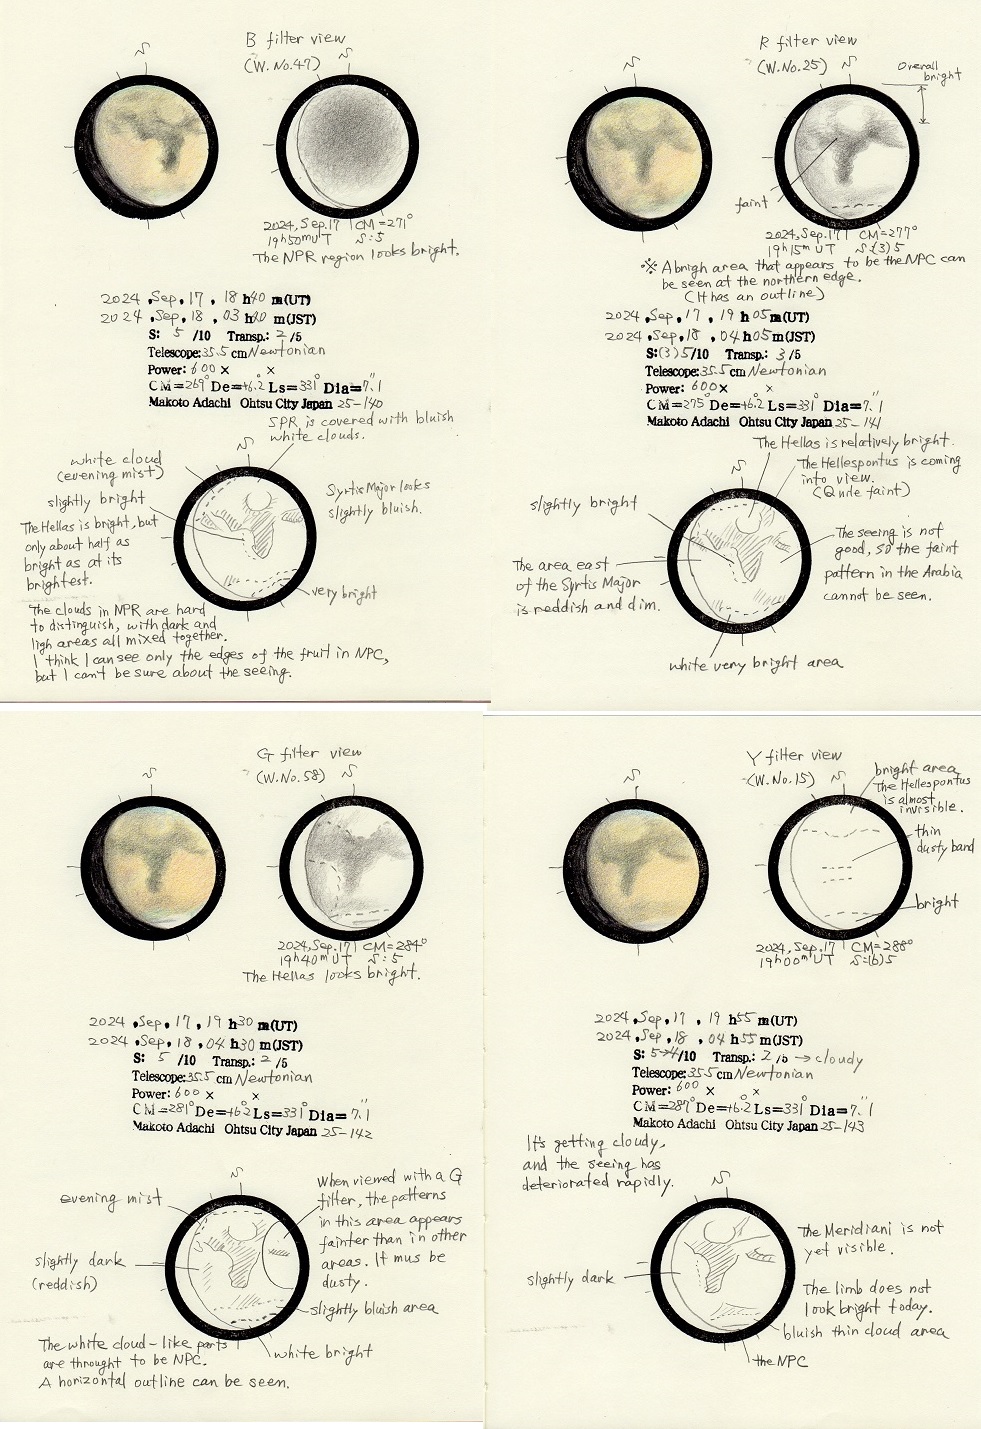 B filter view
(W.No.47)
N
N
2024,Sep.17 | CM=271°
19h50mUT S:5
The NPR region looks bright.
2024 ,Sep, 17 , 18 h40 m(UT)
2024 ,Sep, 18 , 03 h40 m(JST)
S: 5 /10 Transp.: 2 /5
Telescope:35.5 cm Newtonian
Power: 600 × ×
CM=269° De=+6.2° Ls=331° Dia=7.″1
Makoto Adachi Ohtsu City Japan 25-140
SPR is covered with bluish
white clouds.
N
white cloud
(evening mist)
slightly bright
The Hellas is bright, but
only about half as
bright as at its
brightest.
Syrtis Major looks
slightly bluish.
very bright
The clouds in NPR are hard
to distinguish, with dark and
ligh areas all mixed together.
I think I can see only the edges of the fruit in NPC,
but I can't be sure about the seeing.
R filter view
(W.No.25)
N
N
Overall
bright
faint
2024,Sep.17 | CM=277°
19h15m UT S:(3)5
※ A brigh area that appears to be the NPC can
be seen at the northern edge.
(It has an outline)
2024 ,Sep, 17 , 19 h05 m(UT)
2024 ,Sep, 18 , 04 h05 m(JST)
S:(3)5/10 Transp.: 3 /5
Telescope:35.5 cm Newtonian
Power: 600× ×
CM=275° De=+6.2° Ls=331° Dia=7.″1
Makoto Adachi Ohtsu City Japan 25-141
The Hellas is relatively bright.
N
The Hellespontus is coming
into view.
(Quite faint)
slightly bright
The area east
of the Syrtis Major
is reddish and dim.
The seeing is not
good, so the faint
pattern in the Arabia
cannot be seen.
white very bright area
G filter view
(W.No.58)
N
N
2024,Sep.17 | CM=284°
19h40m UT S:5
The Hellas looks bright.
2024 ,Sep, 17 , 19 h30 m(UT)
2024 ,Sep, 18 , 04 h30 m(JST)
S: 5 /10 Transp.: 2 /5
Telescope:35.5 cm Newtonian
Power: 600 × ×
CM=281° De=+6.2° Ls=331° Dia=7.″1
Makoto Adachi Ohtsu City Japan 25-142
N
evening mist
slightly dark
(reddish)
When viewed with a G
filter, the patterns
in this area appears
fainter than in other
areas. It mus be
dusty.
slightly bluish area
white bright
The white cloud-like parts
are throught to be NPC.
A horizontal outline can be seen.
Y filter view
(W.No.15)
N
N
bright area
The Hellespontus
is almost
invisible.
thin
dusty band
bright
2024,Sep.17 | CM=288°
19h00m UT S:(6)5
2024 ,Sep, 17 , 19 h55 m(UT)
2024 ,Sep, 18 , 04 h55 m(JST)
S: 5→4/10 Transp.: 2 /5 → cloudy
Telescope:35.5 cm Newtonian
Power: 600 × ×
CM=287° De=+6.2° Ls=331° Dia=7.″1
Makoto Adachi Ohtsu City Japan 25-143
It's getting cloudy,
and the seeing has
deteriorated rapidly.
N
slightly dark
The Meridiani is not
yet visible.
The limb does not
look bright today.
bluish thin cloud area
the NPC